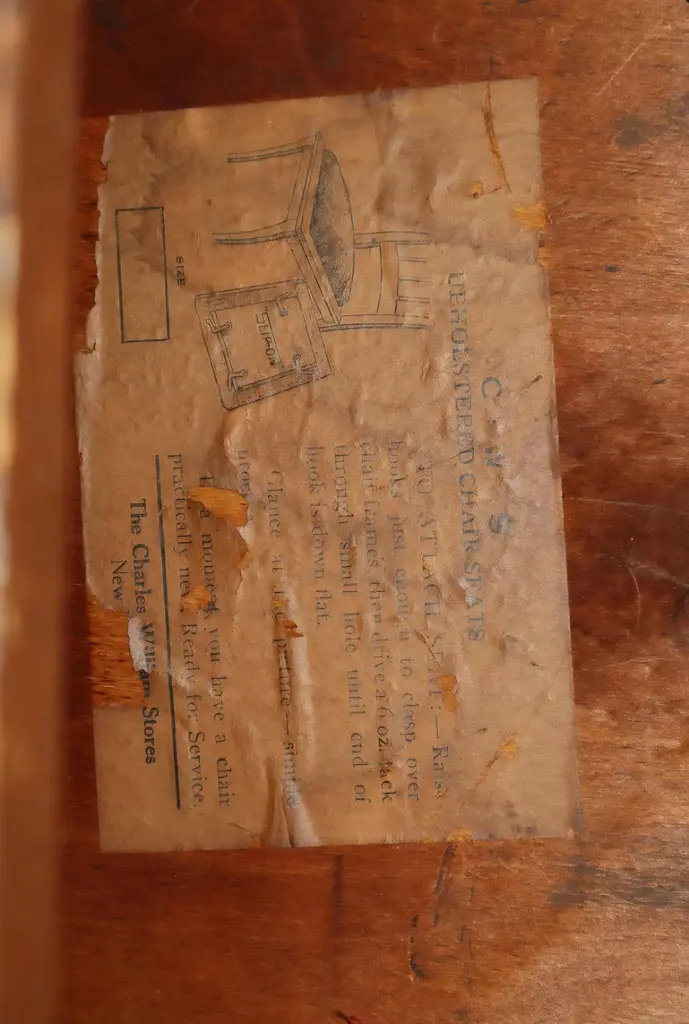 C W S
UPHOLSTERED CHAIR SEATS
TO ATTACH SEAT:— Raise
hooks just enough to clasp over
chair frames then drive a 6 oz. tack
through small hole until end of
hook is down flat.
Glance at the picture — simple
In a moment you have a chair
practically new. Ready for Service.
The Charles William Stores
New
SLIP-ON
SIZE